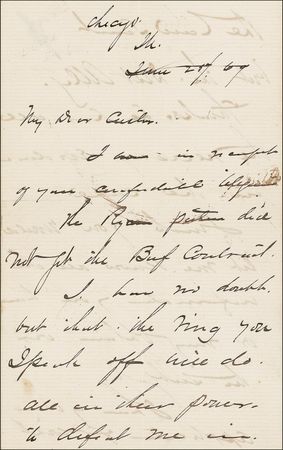 Chicago
Ill.
June 28th 69
My Dear Custer.
I am in receipt
of your confidential
the Ryan parties did
not get the Beef Contract.
I have no doubt.
but that. the ring you
speak off will do.
all in their power.
to defeat me in.